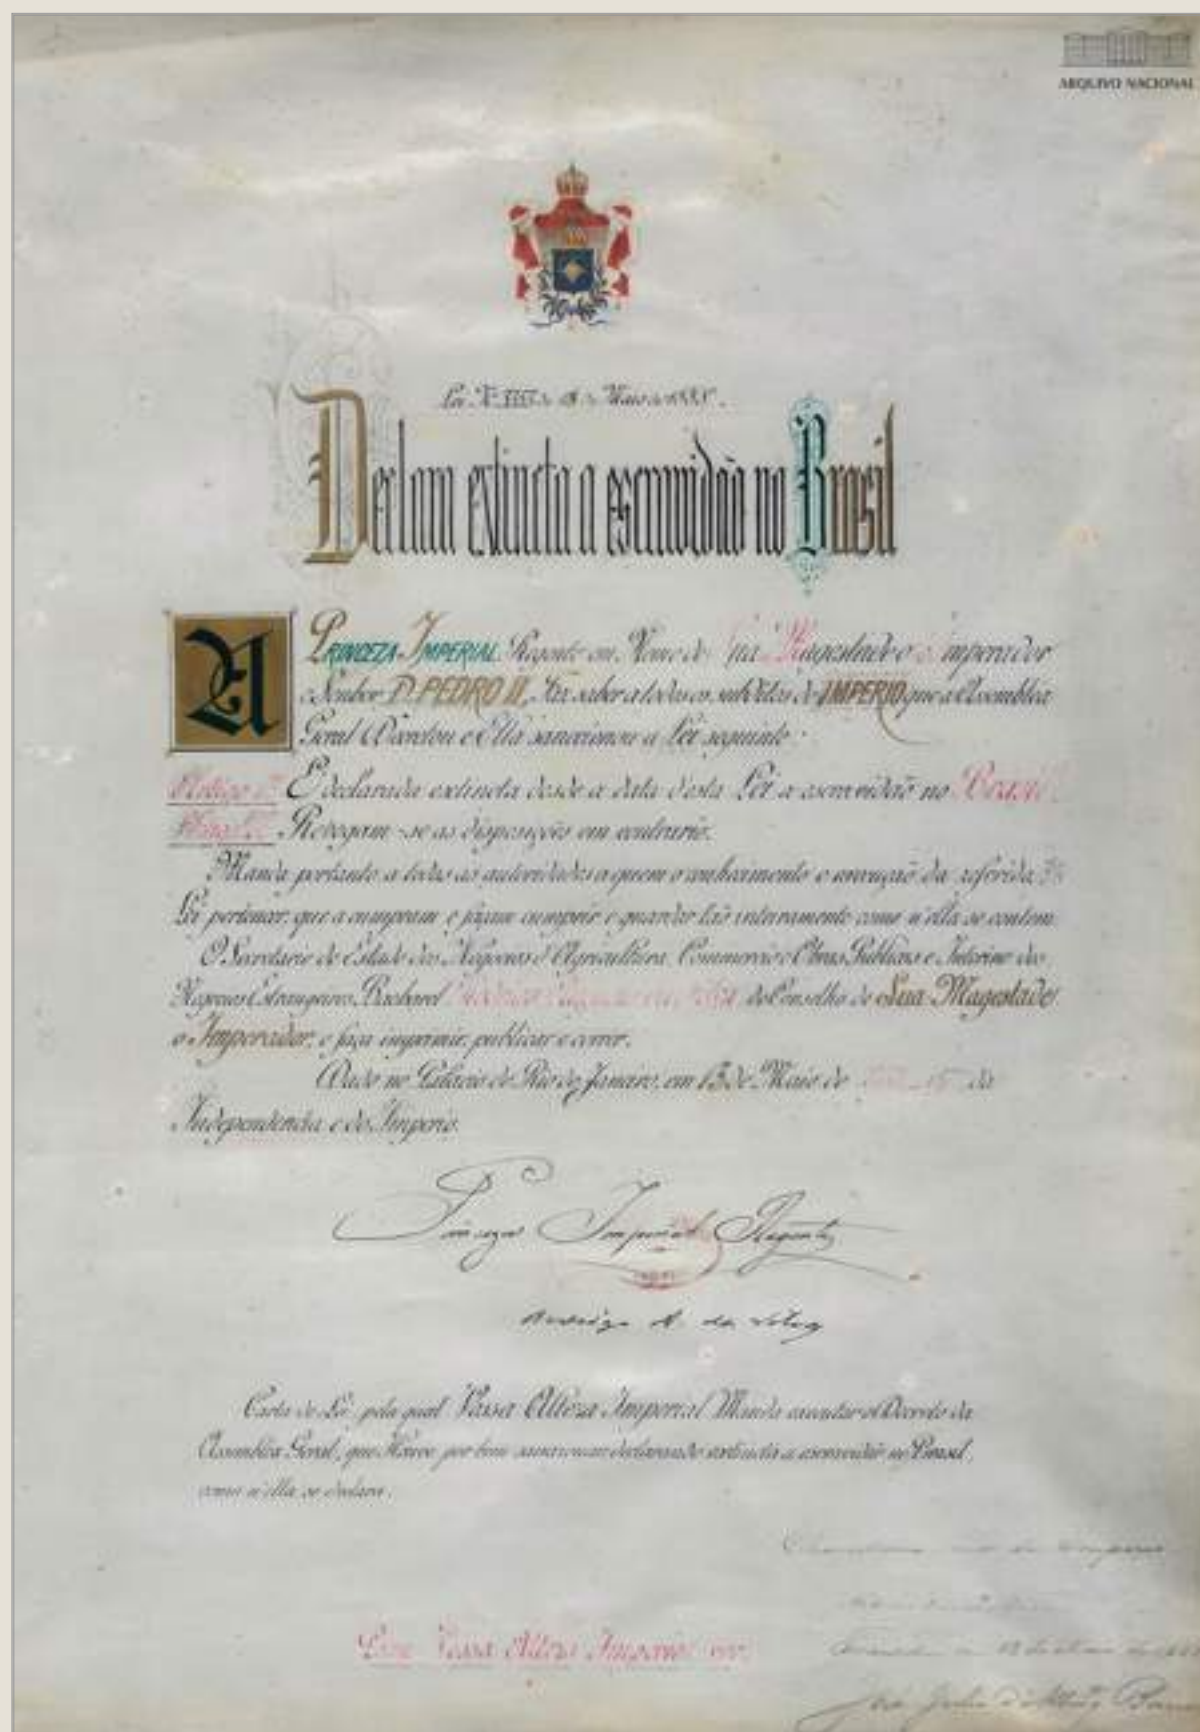 ARQUIVO NACIONAL
Lei Nº 3353 de 13 de Maio de 1888.
Declara extincta a escravidão no Brasil
A PRINCEZA IMPERIAL Regente em Nome de Sua Magestade o Imperador
o Senhor D. PEDRO II, Faz saber a todos os subditos do IMPERIO que a Assembléa
Geral Decretou e Ella sanccionou a Lei seguinte:
Artigo 1º É declarada extincta desde a data d'esta Lei a escravidão no Brazil.
Revogam-se as disposições em contrario.
Manda portanto a todas as autoridades a quem o conhecimento e execução da referida
Lei pertencer, que a cumpram e façam cumprir e guardar tão inteiramente como n'ella se contem.
O Secretario de Estado dos Negocios d'Agricultura, Commercio e Obras Publicas e Interino dos
Negocios Estrangeiros, Bacharel do Conselho de Sua Magestade
o Imperador, o faça imprimir, publicar e correr.
Dado no Palacio do Rio de Janeiro, em 13 de Maio de da
Independencia e do Imperio.
Princeza Imperial Regente
Rodrigo A. da Silva
Carta de Lei, pela qual Vossa Alteza Imperial Manda executar o Decreto da
Assembléa Geral, que Houve por bem sanccionar declarando extincta a escravidão no Brasil,
como n'ella se declara.
Para Vossa Alteza Imperial ver